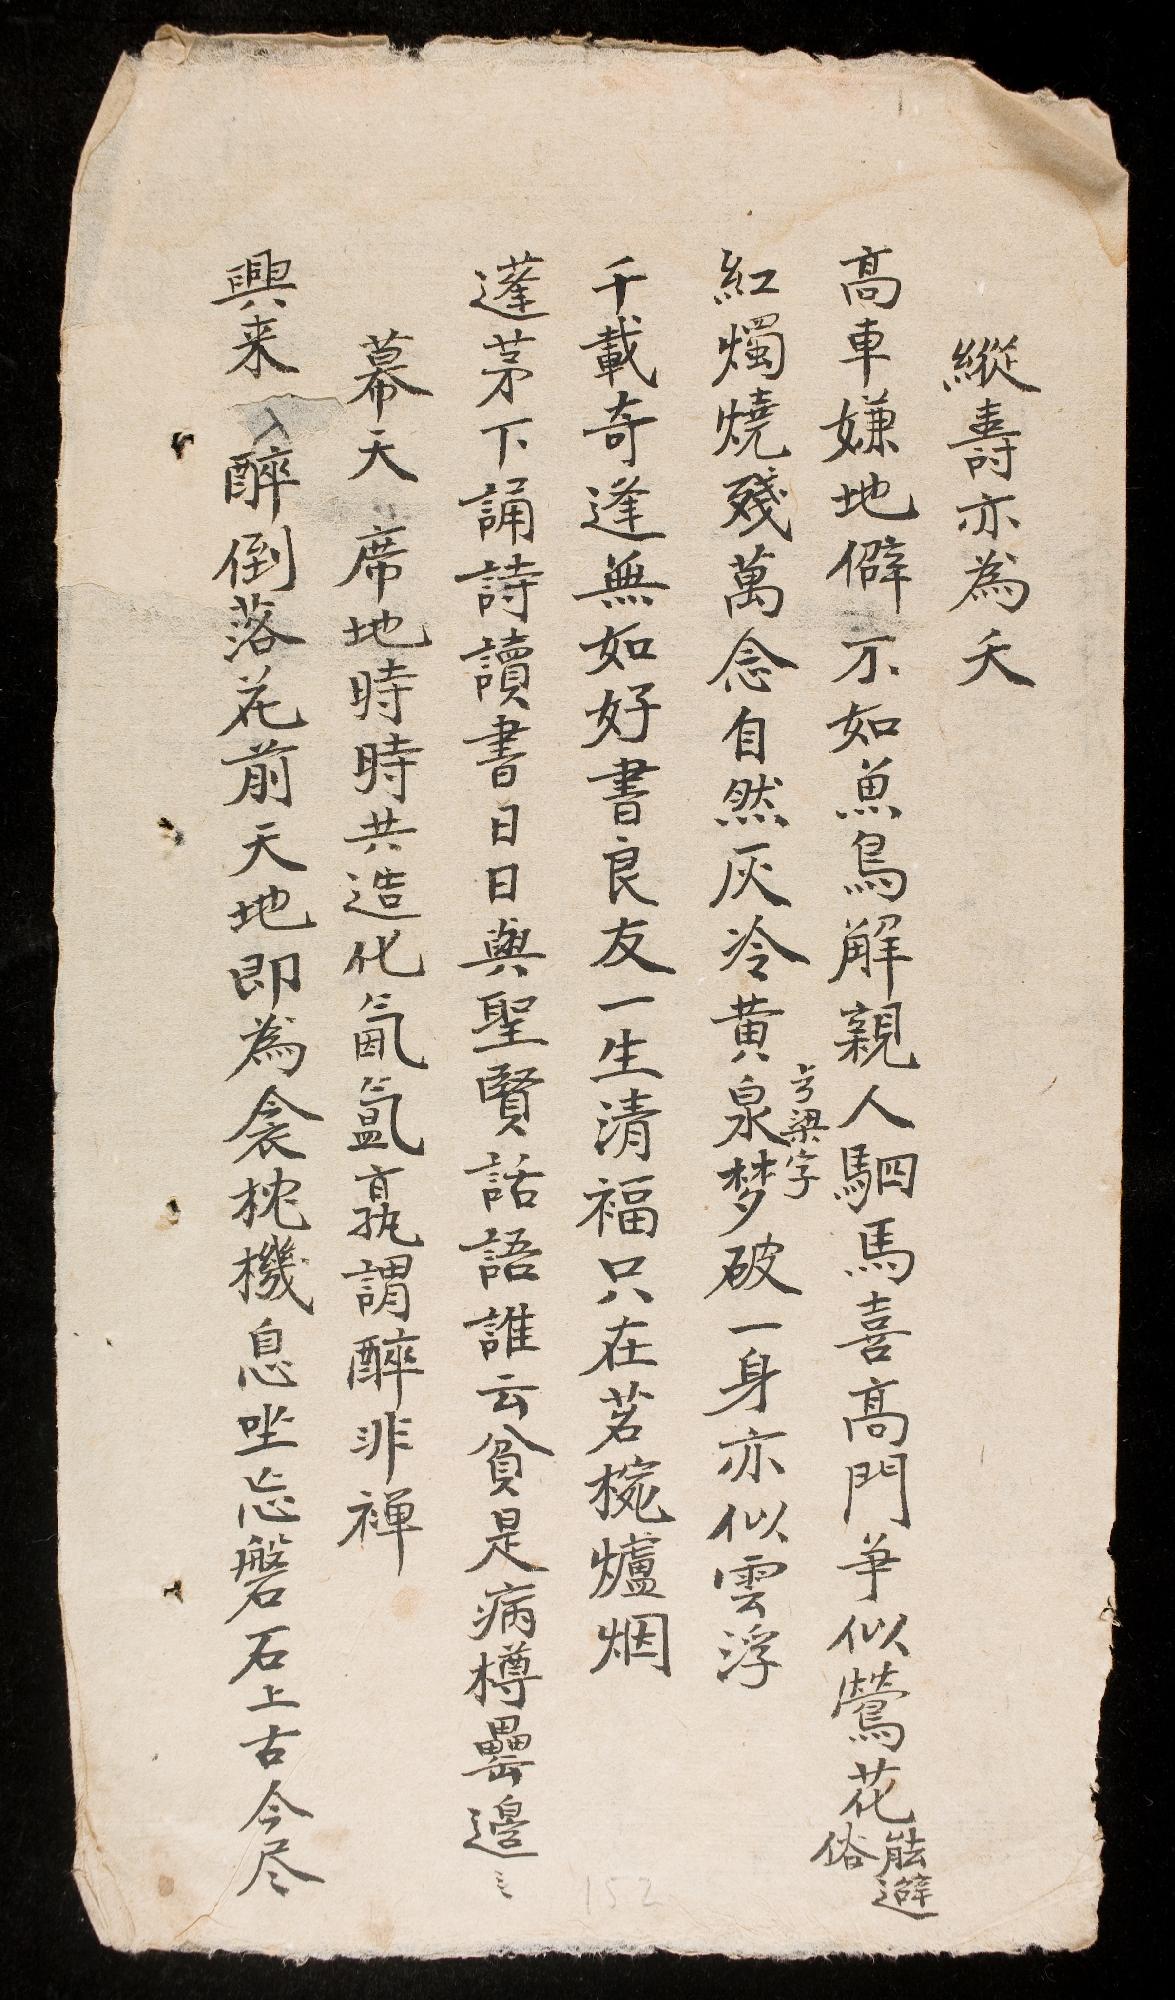 縱壽亦為夭
高車嫌地僻不如魚鳥解親人駟馬喜高門爭似鶯花能避俗
紅燭燒殘萬念自然灰冷黃泉梦破一身亦似雲浮
亏梁字
千載奇逢無如好書良友一生清福只在茗椀爐烟
蓬茅下誦詩讀書日日與聖賢話語誰云貧是病樽罍邊
幕天席地時時共造化氤氳孰謂醉非禅
興来醉倒落花前天地即為衾枕機息坐忘磐石上古今尽
152